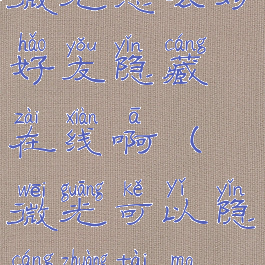 hǎo yǒu yǐn cáng
好友隐藏
zài xiàn ā
在线啊（
wēi guāng kě yǐ yǐn
微光可以隐
cáng zhuàng tài ma